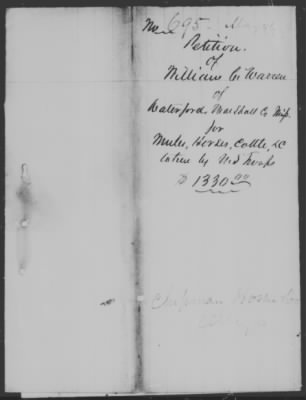 No 695
Petition
of
William C. Warren
of
Waterford, Marshall Co Miss.
for
Mules, Horses, Cattle, &C
taken by U.S. Troops
$ 1330 00
Chapman